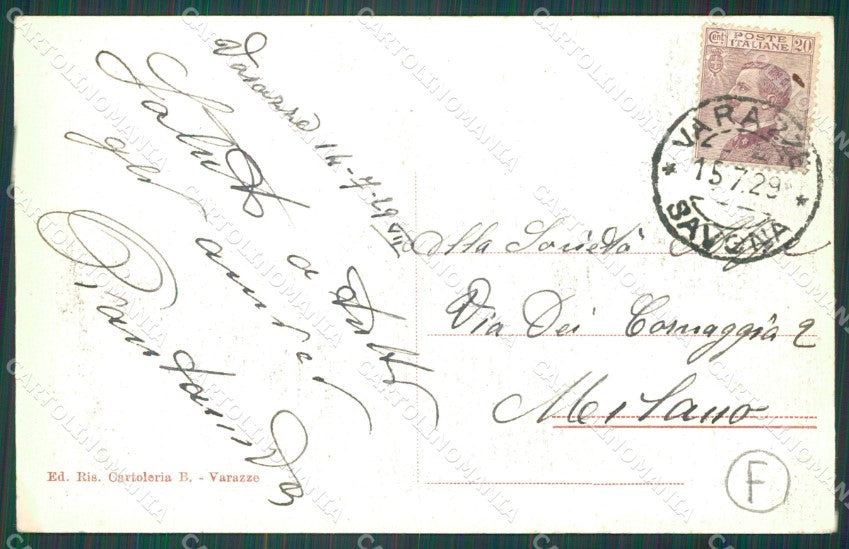 Varazze 14-7-29 VII
Saluti a tutti
gli amici
Cent. POSTE ITALIANE 20
VARAZZE
15.7.29
SAVONA
Alla Società
Via Dei Cornaggia 2
Milano
Ed. Ris. Cartoleria B. - Varazze
F
CARTOLINOMANIA